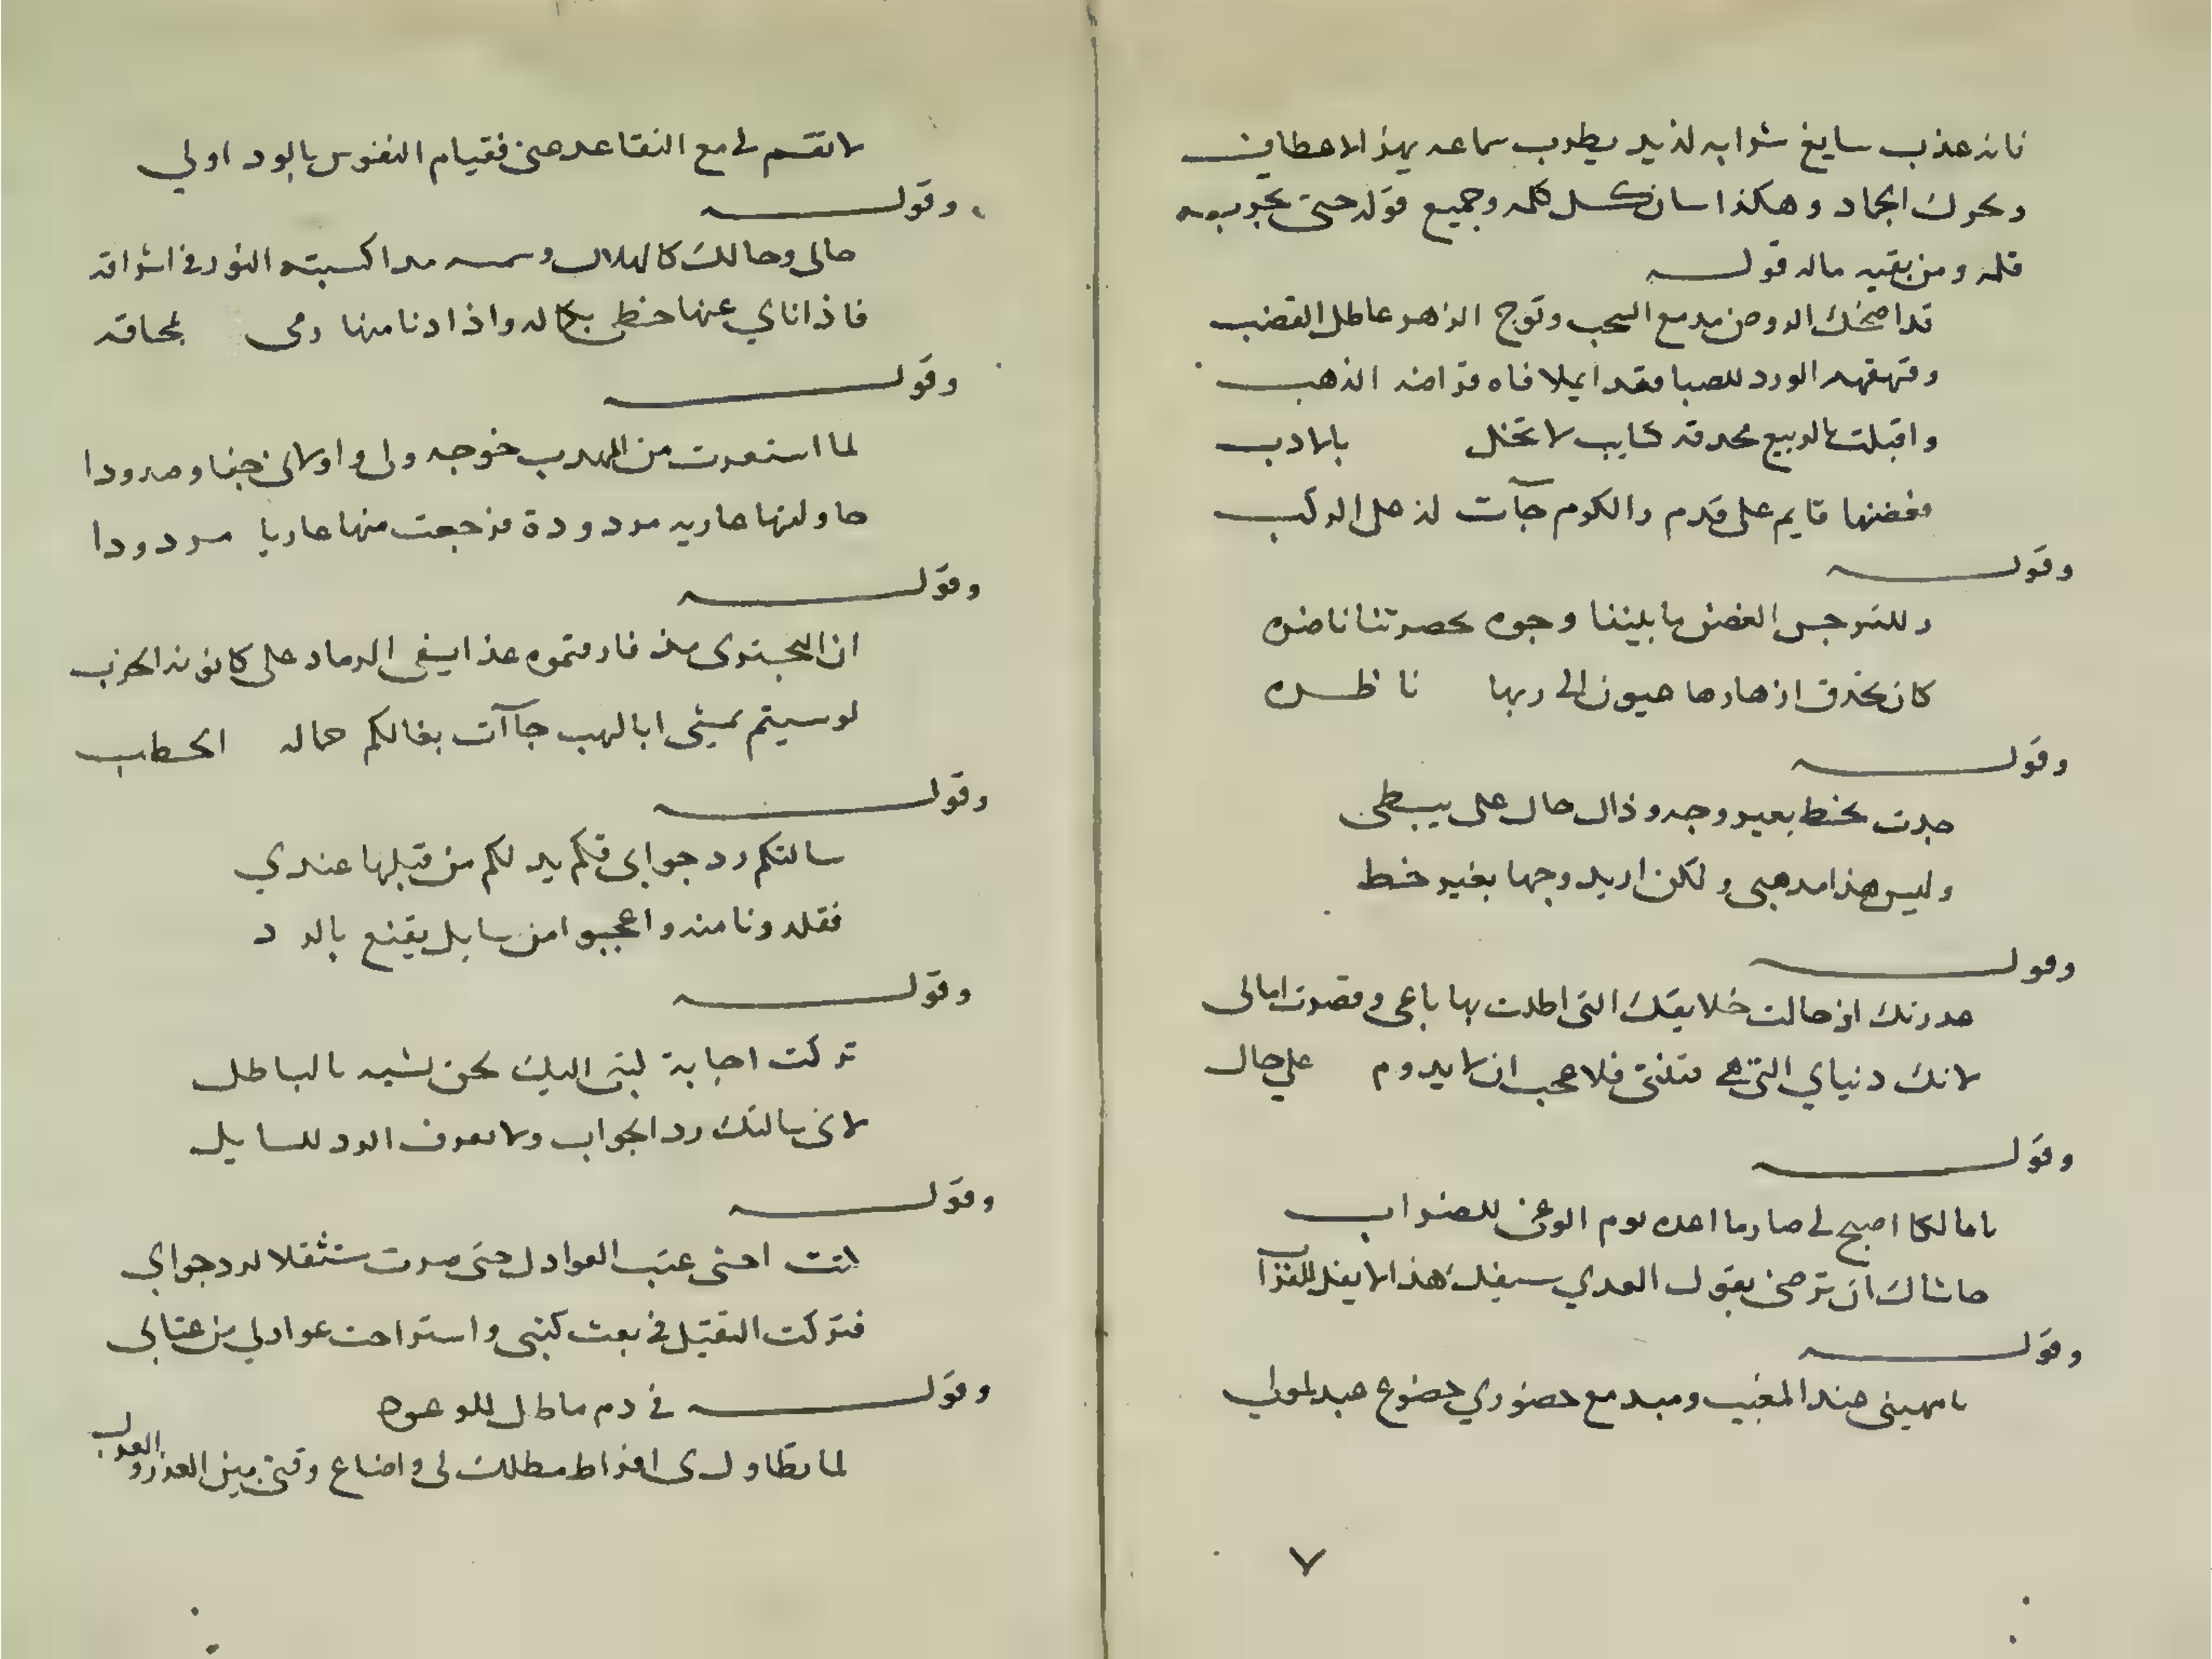 فانه عذب سايغ شرابه لذيذ يطرب سماعه يهز الاعطاف
ويحرك الجماد وهكذا سان كل كلمه وجميع قوله حتى بحوبه
قلمه ومن بقيه ماله قوله
قد اضحك الروض مدمع السحب وتوج الزهر عاطل القضب
وقهقهه الورد للصبا فقد ايملا فاه قراضه الذهب
واقبلت بالربيع محدقه كتايب لا تخل بالادب
فغصنها قايم على قدم والكرم جآت لذ على الركب
وقوله
وللنرجس الغض ما بيننا وجوه بحضرتنا ناضره
كان تحدق ازهارها عيون الى ربها ناظره
وقوله
جدت بخط بغير وجه وذال حال على يبسطى
وليس هذا مذهبي ولكن اريد وجها بغير خط
وقوله
عذرتك اذ حالت خلايقك التى اطلت بها باعى وقصرت امالى
لانك دنياي التي هي فتنتى فلا عجب ان لا يدوم علي حال
وقوله
يا مالكا اصبح لي صارما اعده يوم الوغى للضراب
حاشاك ان ترضى بقول العدي سيفك هذا لا يفل للقراب
وقوله
يا مهيني عند المغيب ومبد مع حضوري خضوع عبد لمولي
لا تقم لي مع التقاعد عنى فقيام النفوس بالود اولي
وقوله
حالى وحالك كالهلال وشمسه مذ اكسبته النور في اشراقه
فاذا ناي عنها حظى بكماله واذا دنا منها رمى بمحاقه
وقوله
لما استعرت من المهذب خوجه ولى واولانى جفا وصدودا
حاولتها عاريه مردودة فرجعت منها عاريا مردودا
وقوله
ان البحترى مذ فارقتموه غدا يسفى الرماد على كانونه الحرب
لو سيتم يمشى ابا لهب جاآت بغالكم حماله الحطب
وقوله
سالتكم رد جوابى فكم يد لكم من قبلها عندي
فقلدونا منه واعجبوا من سايل يقنع بالرد
وقوله
تركت اجابة لبتى اليك نحن لشبه بالباطل
لانى سالتك رد الجواب ولا تعرف الرد للسايل
وقوله
انت اخشى عتب العواذل حتى صرت مستثقلا لرد جوابي
فتركت الثقيل في بعث كتبى واستراحت عواذلي من عتابي
وقوله في ذم ماطل للوعود
لما تطاول بى افراط مطلك لي واضاع وقتى بين العذر والعذل
٧